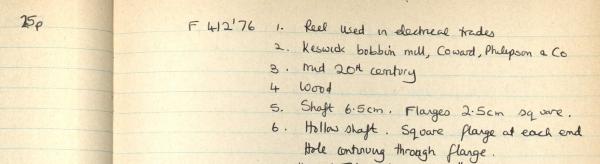 25p
F 412'76 1. Reel used in electrical trades
2. Keswick bobbin mill, Coward, Philipson & Co
3. Mid 20th century
4 Wood
5. Shaft 6.5cm. Flanges 2.5cm square.
6. Hollow shaft. Square flange at each end
Hole continuing through flange.